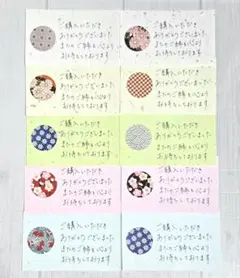 ご購入いただき
ありがとうございました
またのご縁を心より
お待ちしております
ご購入いただき
ありがとうございました
またのご縁を心より
お待ちしております
ご購入いただき
ありがとうございました
またのご縁を心より
お待ちしております
ご購入いただき
ありがとうございました
またのご縁を心より
お待ちしております
ご購入いただき
ありがとうございました
またのご縁を心より
お待ちしております
ご購入いただき
ありがとうございました
またのご縁を心より
お待ちしております
ご購入いただき
ありがとうございました
またのご縁を心より
お待ちしております
ご購入いただき
ありがとうございました
またのご縁を心より
お待ちしております
ご購入いただき
ありがとうございました
またのご縁を心より
お待ちしております
ご購入いただき
ありがとうございました
またのご縁を心より
お待ちしております